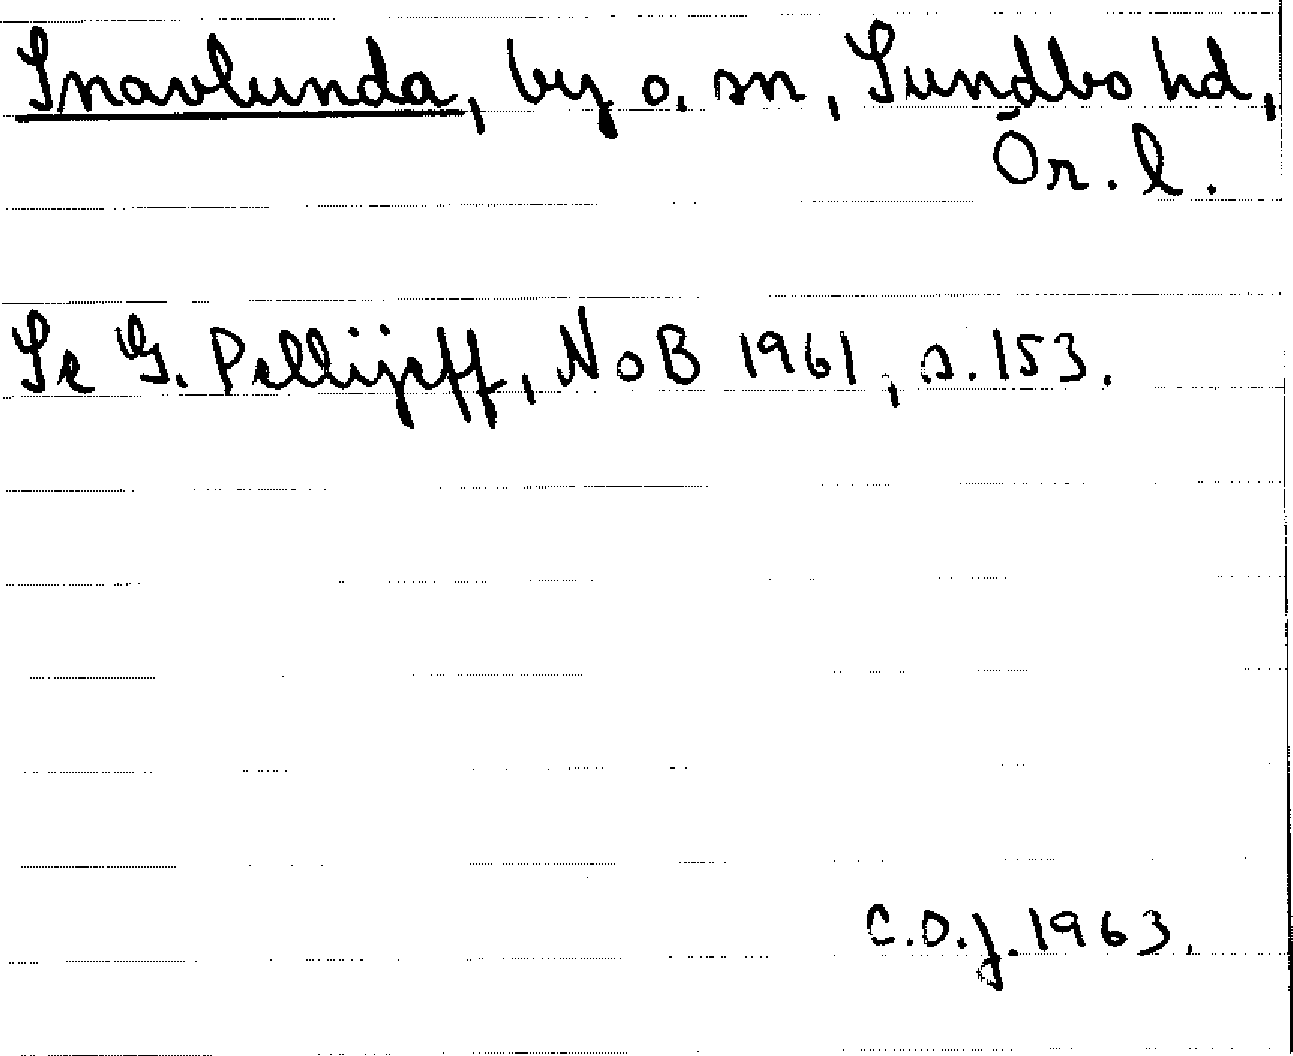 Snavlunda, by o. sn, Sundbo hd,
Ör. l.
Se G. Pellijeff, NoB 1961, s. 153.
C.O.J. 1963.